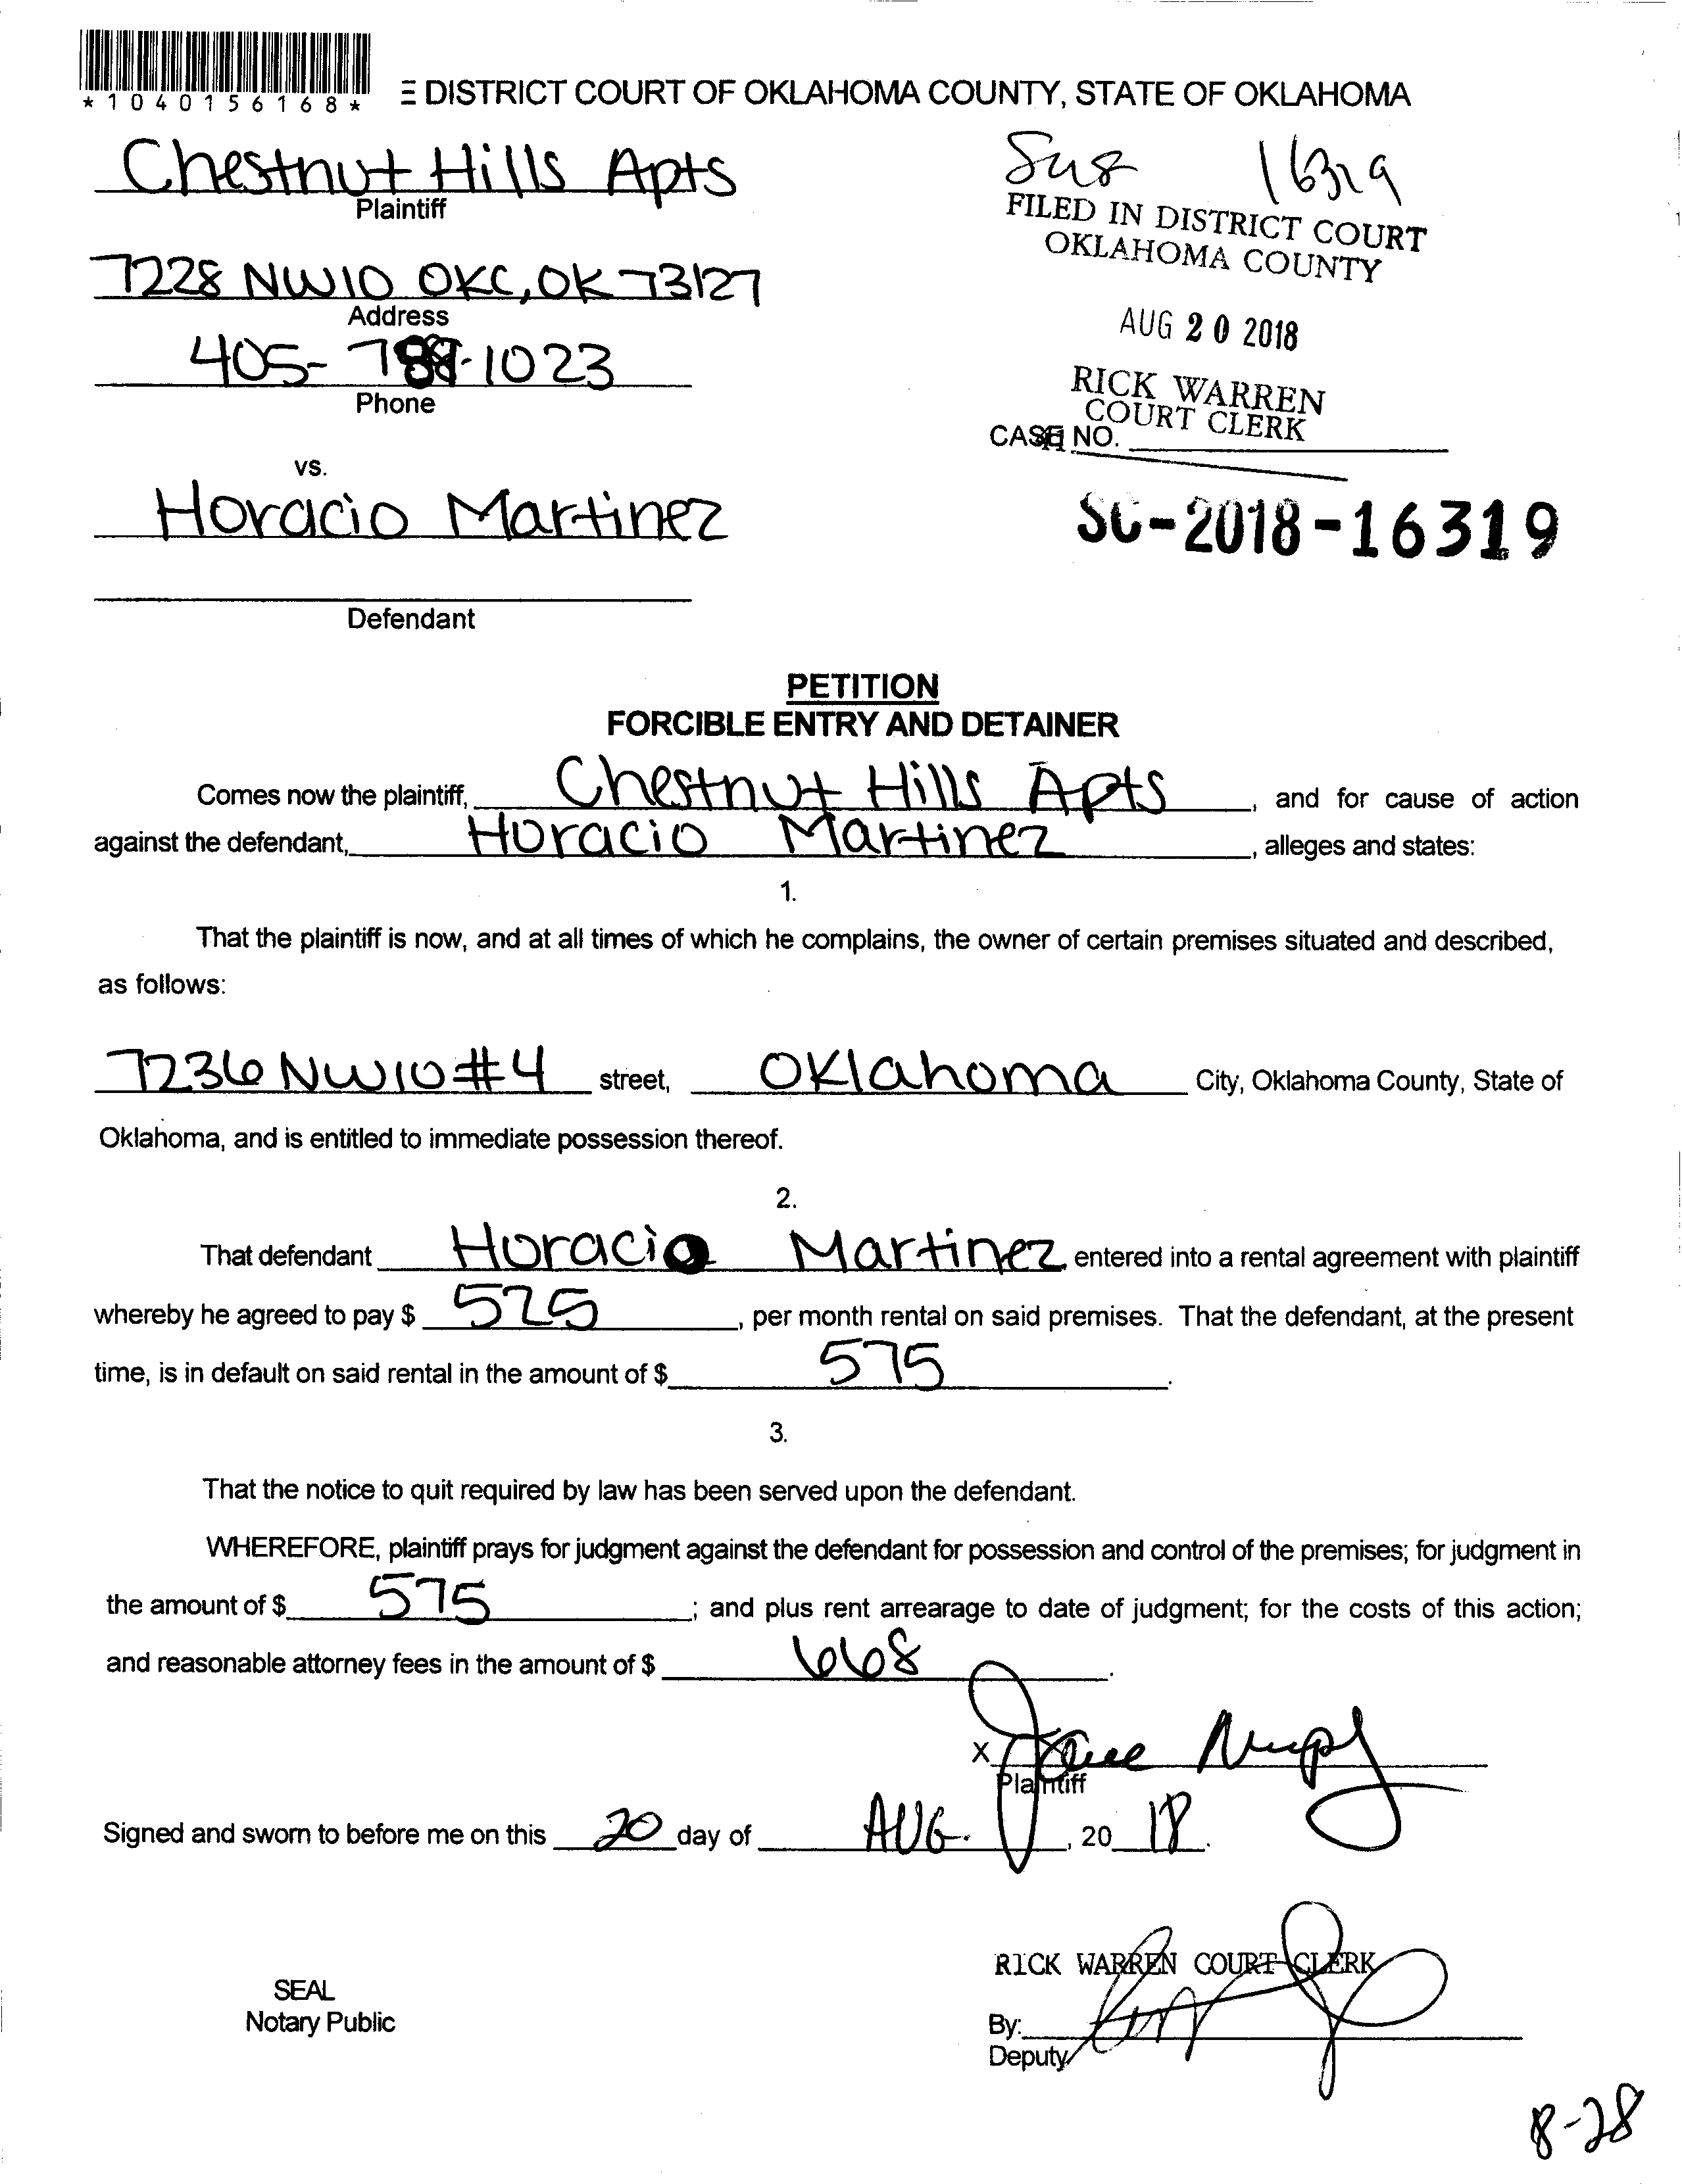 *1040156168*
E DISTRICT COURT OF OKLAHOMA COUNTY, STATE OF OKLAHOMA
Chestnut Hills Apts
Plaintiff
7228 NW10 OKC, OK 73127
Address
405- 789-1023
Phone
vs.
Horacio Martinez
Defendant
FILED IN DISTRICT COURT
OKLAHOMA COUNTY
AUG 20 2018
RICK WARREN
COURT CLERK
CASE NO.
SC-2018-16319
PETITION
FORCIBLE ENTRY AND DETAINER
Comes now the plaintiff, Chestnut Hills Apts, and for cause of action
against the defendant, Horacio Martinez, alleges and states:
1.
That the plaintiff is now, and at all times of which he complains, the owner of certain premises situated and described,
as follows:
7236 NW10 #4 street, Oklahoma City, Oklahoma County, State of
Oklahoma, and is entitled to immediate possession thereof.
2.
That defendant Horacio Martinez entered into a rental agreement with plaintiff
whereby he agreed to pay $ 525, per month rental on said premises. That the defendant, at the present
time, is in default on said rental in the amount of $ 575.
3.
That the notice to quit required by law has been served upon the defendant.
WHEREFORE, plaintiff prays for judgment against the defendant for possession and control of the premises; for judgment in
the amount of $ 575; and plus rent arrearage to date of judgment; for the costs of this action;
and reasonable attorney fees in the amount of $ 668.
X
Plaintiff
Signed and sworn to before me on this 20 day of AUG., 20 18.
RICK WARREN COURT CLERK
SEAL
Notary Public
By:
Deputy
8-28